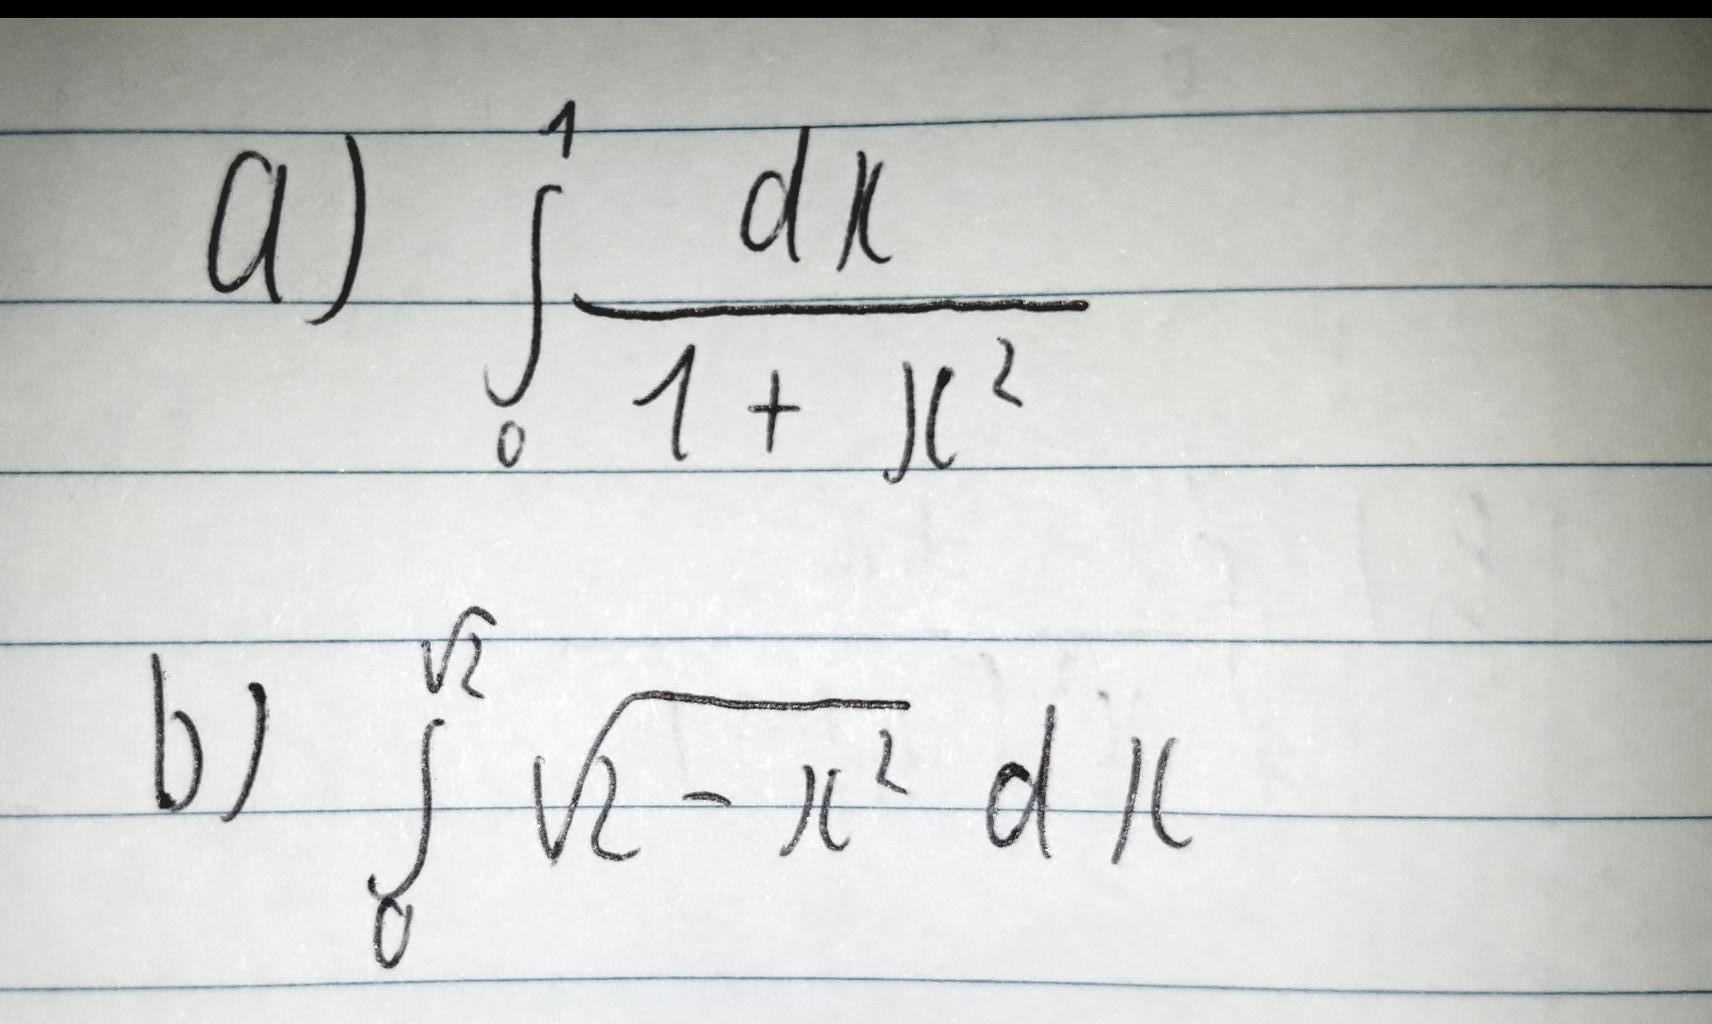 a) ∫₀¹ dx / (1 + x²)
b) ∫₀^√2 √(2 - x²) dx